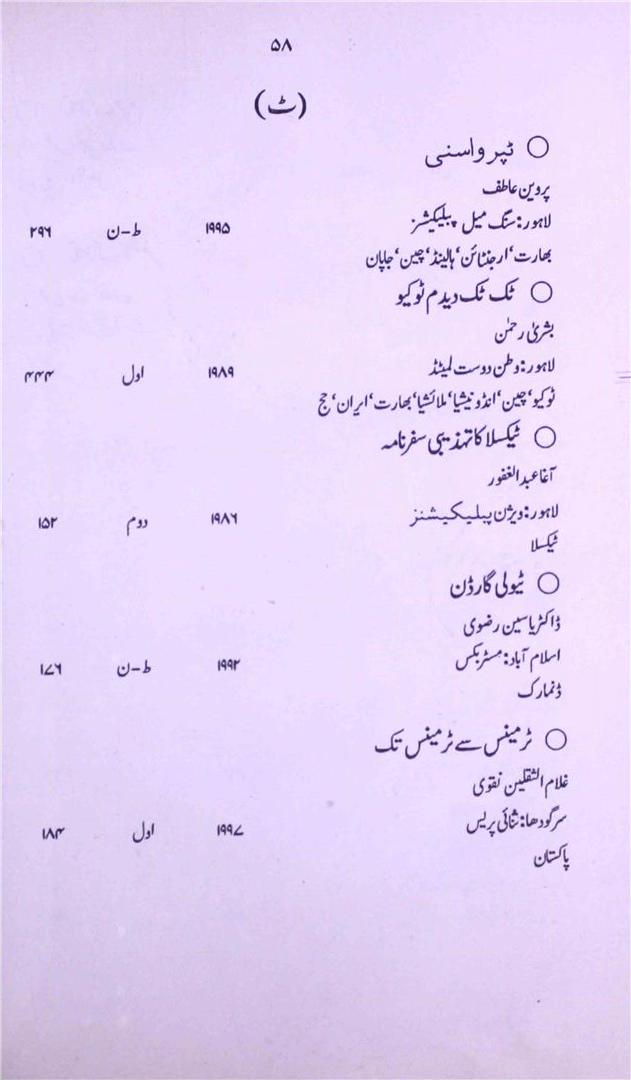 ۵۸
(ٹ)
○ ٹپر واسنی
پروین عاطف
لاہور: سنگ میل پبلیکیشنز ۱۹۹۵ ط-ن ۲۹۶
بھارت، ارجنٹائن، ہالینڈ، چین، جاپان
○ ٹک ٹک دیدم ٹوکیو
بشریٰ رحمٰن
لاہور: وطن دوست لمیٹڈ ۱۹۸۹ اول ۴۴۴
ٹوکیو، چین، انڈونیشیا، ملائشیا، بھارت، ایران، حج
○ ٹیکسلا کا تہذیبی سفرنامہ
آغا عبدالغفور
لاہور: ویژن پبلیکیشنز ۱۹۸۶ دوم ۱۵۲
ٹیکسلا
○ ٹیولی گارڈن
ڈاکٹر یاسین رضوی
اسلام آباد: مسٹر بکس ۱۹۹۲ ط-ن ۱۷۶
ڈنمارک
○ ٹرمینس سے ٹرمینس تک
غلام الثقلین نقوی
سرگودھا: ثنائی پریس ۱۹۹۷ اول ۱۸۴
پاکستان